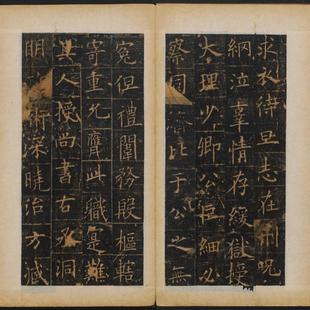 求衣待旦志在刑呪
納泣辜情存緩獄授
大理少卿公巨細必
察同比于公之無
寃但禮闈務殷樞轄
寄重允膺此職寔難
其人授尚書右丞洞
明術深曉治方減